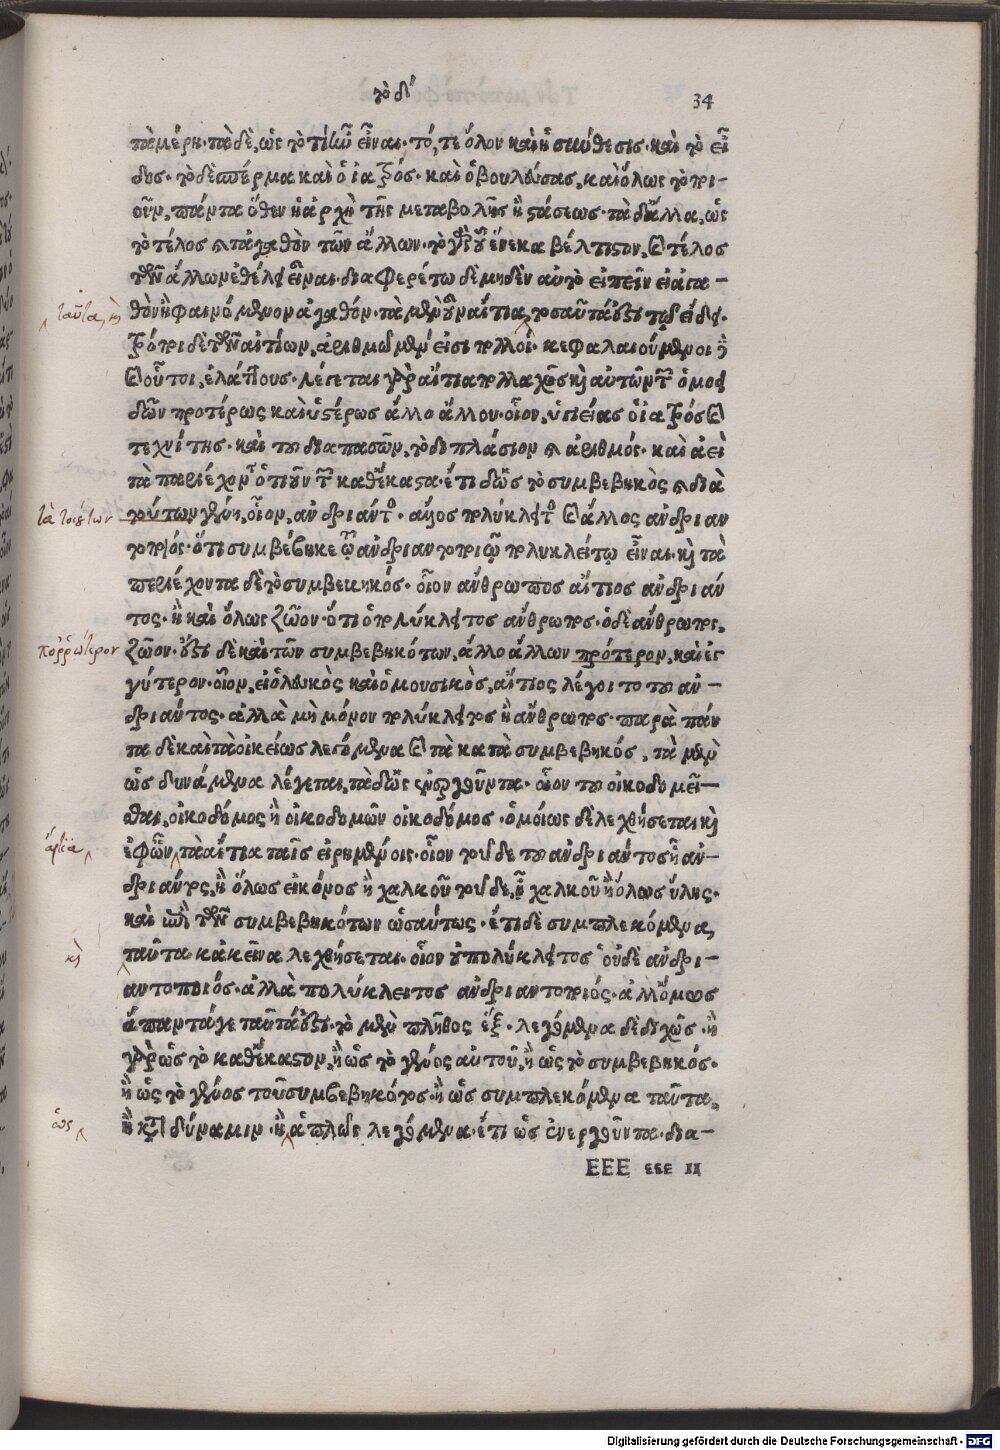 τὸ δ´
34
τὰ μέρη. τὰ δὲ, ὡς τὸ τί ἦν εἶναι. τό, τε ὅλον καὶ ἡ σύνθεσις. καὶ τὸ εἶ
δος. τὸ δὲ σπέρμα καὶ ὁ ἰατρός. καὶ ὁ βουλεύσας, καὶ ὅλως τὸ ποι-
οῦν, πάντα ὅθεν ἡ ἀρχὴ τῆς μεταβολῆς ἢ στάσεως. τὰ δ' ἄλλα, ὡς
τὸ τέλος καὶ τἀγαθὸν τῶν ἄλλων. τὸ γὰρ οὗ ἕνεκα βέλτιστον, καὶ τέλος
τῶν ἄλλων ἐθέλει εἶναι. διαφερέτω δὲ μηδὲν αὐτὸ εἰπεῖν εἰ ἀγα-
θὸν ἢ φαινόμενον ἀγαθόν. τὰ μὲν οὖν αἴτια, τοσαῦτά ἐστι τῷ εἴδει.
τρόποι δὲ τῶν αἰτίων, ἀριθμῷ μέν εἰσι πολλοί. κεφαλαιούμενοι ἢ
καὶ οὗτοι, ἐλάττους. λέγεται γὰρ αἴτια πολλαχῶς καὶ αὐτῶν τῶν ὁμοει
δῶν προτέρως καὶ ὑστέρως ἄλλο ἄλλου. οἷον, ὑγιείας ὁ ἰατρός καὶ
τεχνίτης. καὶ τοῦ διαπασῶν, τὸ διπλάσιον καὶ ἀριθμός. καὶ ἀεὶ
τὰ περιέχοντα ὁτιοῦν τῶν καθ' ἕκαστα. ἔτι δ' ὡς τὸ συμβεβηκὸς καὶ διὰ
τούτων γένη, οἷον, ἀνδριάντος. ἄλλως πολύκλειτος καὶ ἄλλος ἀνδριαν
τοποιός. ὅτι συμβέβηκε τῷ ἀνδριαντοποιῷ πολυκλείτῳ εἶναι. καὶ τὰ
περιέχοντα δὲ τὸ συμβεκηκός. οἷον ἄνθρωπος αἴτιος ἀνδριάν
τος. ἢ καὶ ὅλως ζῷον. ὅτι ὁ πολύκλειτος ἄνθρωπος. ὁ δὲ ἄνθρωπος,
ζῷον. ἔστι δὲ καὶ τῶν συμβεβηκότων, ἄλλο ἄλλων πρότερον, καὶ ἐγ
γύτερον. οἷον, εἰ ὁ λευκὸς καὶ ὁ μουσικὸς, αἴτιος λέγοιτο τοῦ ἀν-
δριάντος. ἀλλὰ μὴ μόνον πολύκλειτος ἢ ἄνθρωπος. παρὰ πάν
τα δὲ καὶ τὰ οἰκείως λεγόμενα καὶ τὰ κατὰ συμβεβηκός, τὰ μὲν
ὡς δυνάμενα λέγεται, τὰ δ' ὡς ἐνεργοῦντα. οἷον τοῦ οἰκοδομεῖ-
σθαι, οἰκοδόμος ἢ οἰκοδομῶν οἰκοδόμος. ὁμοίως δὲ λεχθήσεται καὶ
ἐφ' ὧν τὰ αἴτια ταῖς εἰρημένοις. οἷον τοῦδε τοῦ ἀνδριάντος ἢ ἀν-
δριάντος, ἢ ὅλως εἰκόνος ἢ χαλκοῦ τοῦδε, ἢ χαλκοῦ ἢ ὅλως ὕλης.
καὶ ἐπὶ τῶν συμβεβηκότων ὡσαύτως. ἔτι δὲ συμπλεκόμενα,
ταῦτα κἀκεῖνα λεχθήσεται. οἷον οὐ πολύκλειτος οὐδὲ ἀνδρι-
αντοποιός. ἀλλὰ πολύκλειτος ἀνδριαντοποιός. ἀλλ' ὅμως
ἅπαντά γε ταῦτά ἐστι. τὸ μὲν πλῆθος ἓξ. λεγόμενα δὲ διχῶς. ἢ
γὰρ ὡς τὸ καθ' ἕκαστον, ἢ ὡς τὸ γένος αὐτοῦ, ἢ ὡς τὸ συμβεβηκός.
ἢ ὡς τὸ γένος τοῦ συμβεβηκότος. ἢ ὡς συμπλεκόμενα ταῦτα,
ἢ κατὰ δύναμιν. ἢ ἁπλῶς λεγόμενα. ἔτι ὡς ἐνεργοῦντα. δια-
EEE εεε II
ταῦτα, καὶ
τὰ τούτων
πορρώτερον
αἴτια
καὶ
ὡς
Digitalisierung gefördert durch die Deutsche Forschungsgemeinschaft - DFG